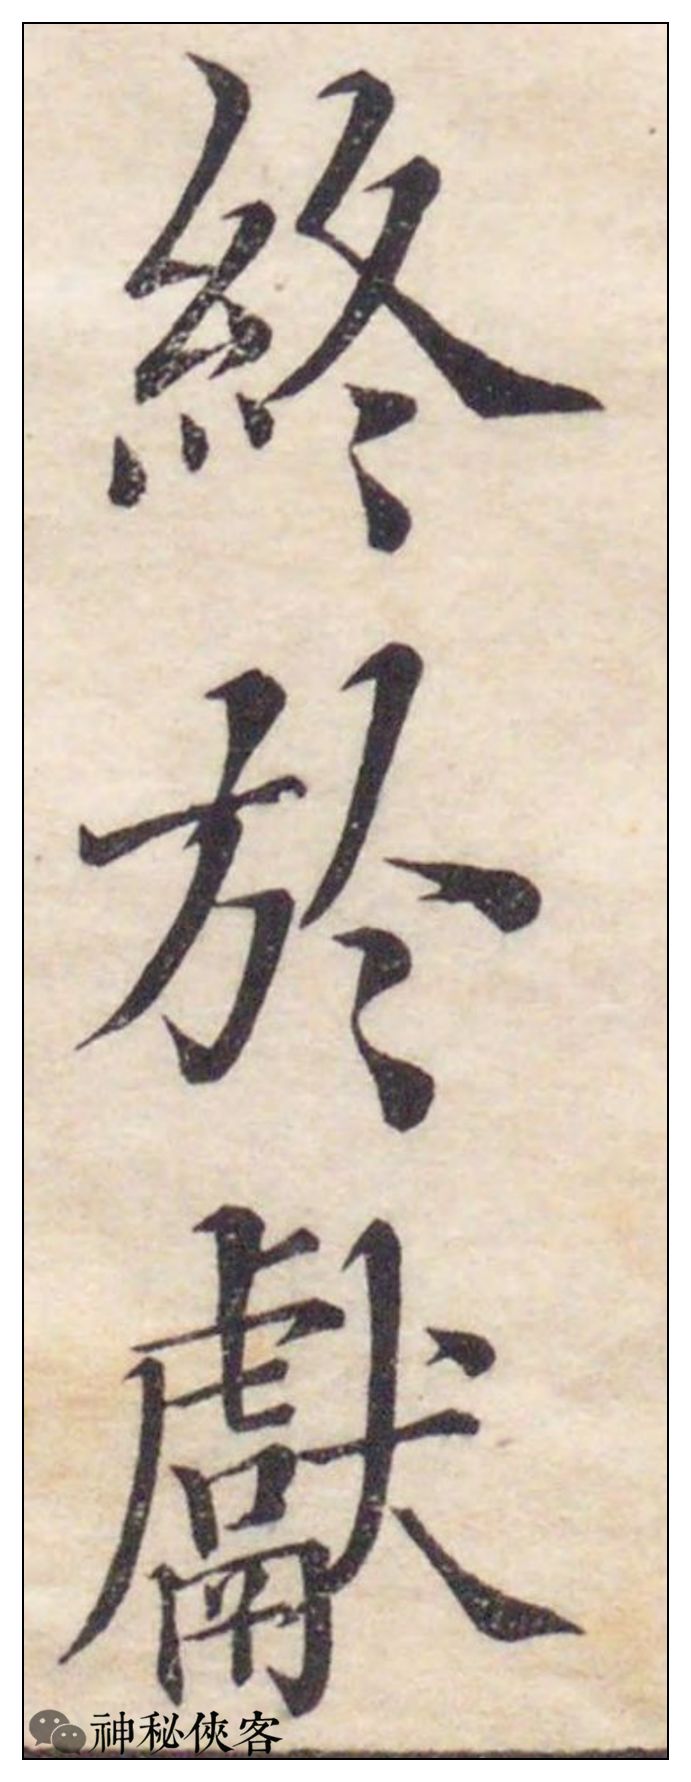 終於獻
神秘俠客